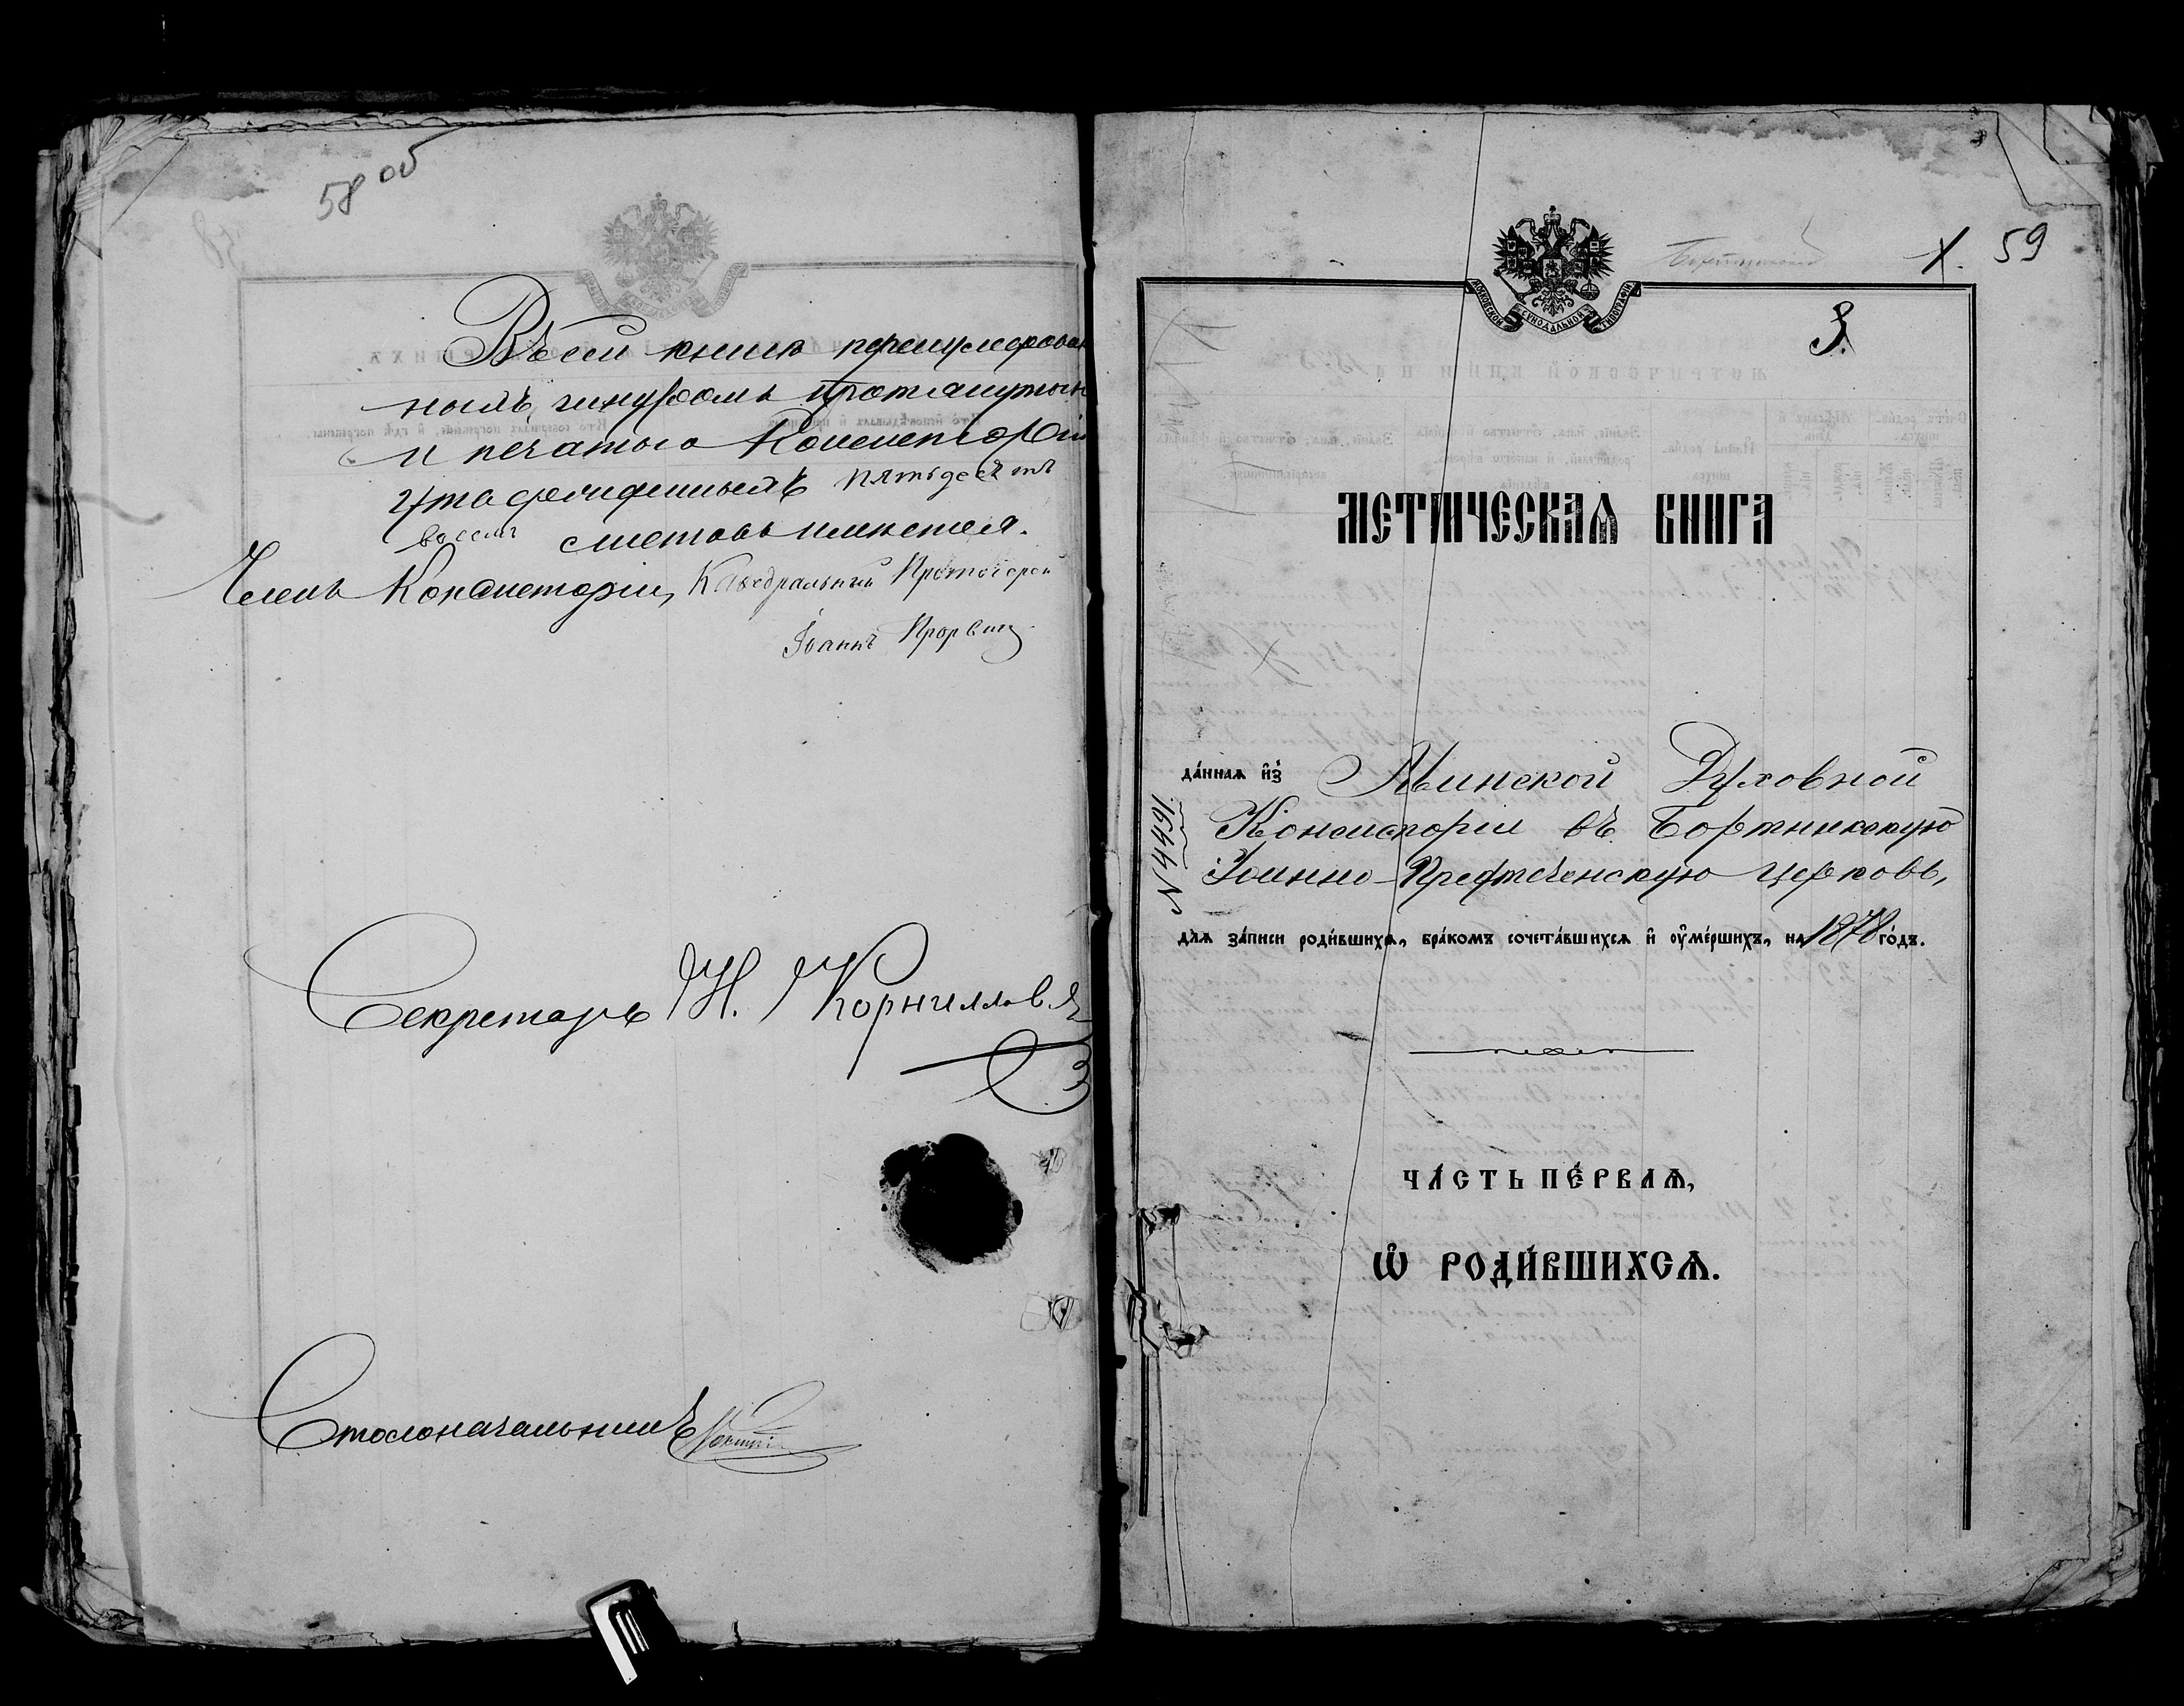 58 об
Въ сей книгѣ перенумерован
ныхъ, шнуромъ протянутыхъ
и печатью Консисторіи
утвержденныхъ пятьдесятъ
восемь листовъ имѣется.
Членъ Консисторіи, Каѳедральный Протоіерей
Іоаннъ
Секретарь Н. Корниловъ
Столоначальникъ
59
3.
МОСКОВСКОЙ СѴНОДАЛЬНОЙ ТИПОГРАФІИ
МЕТРИЧЕСКАѦ КНИГА
да́ннаѧ и҆з̾ Минской Духовной
Консисторіи въ Бортникскую
Іоанно-Предтеченскую церковь,
№ 4491.
длѧ за́писи роди́вшихсѧ, бра́комъ сочета́вшихсѧ и҆ ѹ҆ме́ршихъ, на 1878 го́дъ.
ЧА́СТЬ ПЕ́РВАѦ,
Ѽ РОДИ́ВШИХСѦ.